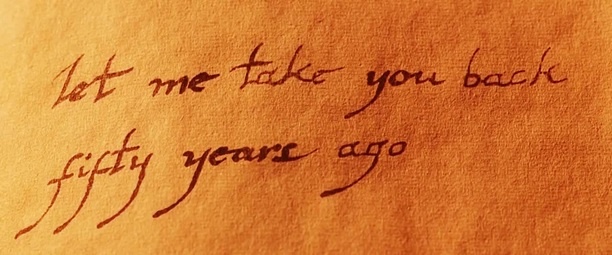 let me take you back
fifty years ago